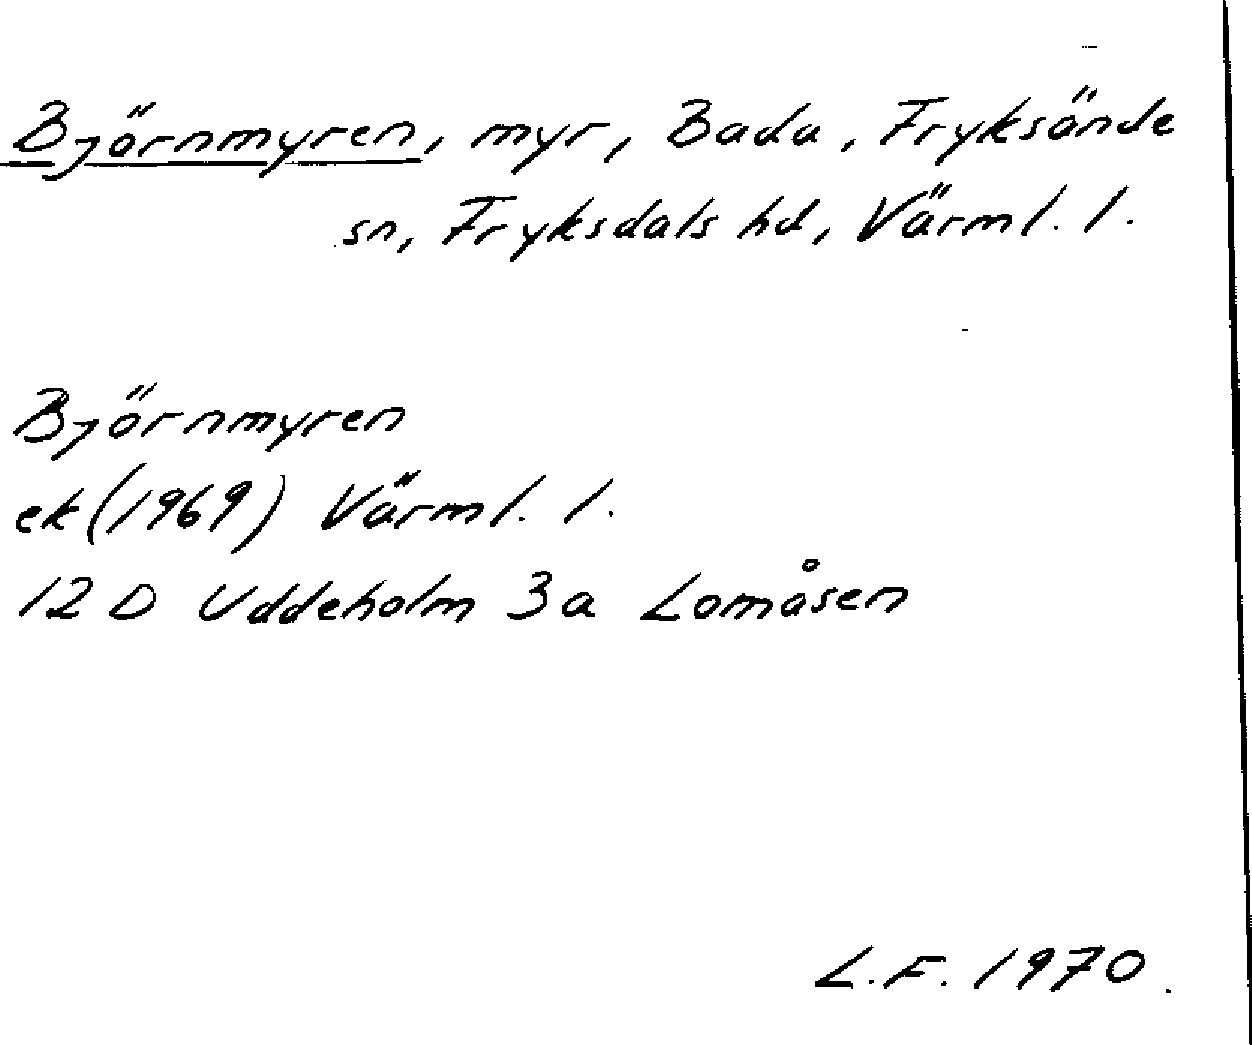 Björnmyren, myr, Bada, Fryksände
sn, Fryksdals hd, Värml. l.
Björnmyren
ek (1969) Värml. l.
12 D Uddeholm 3a Lomåsen
L.F. 1970.